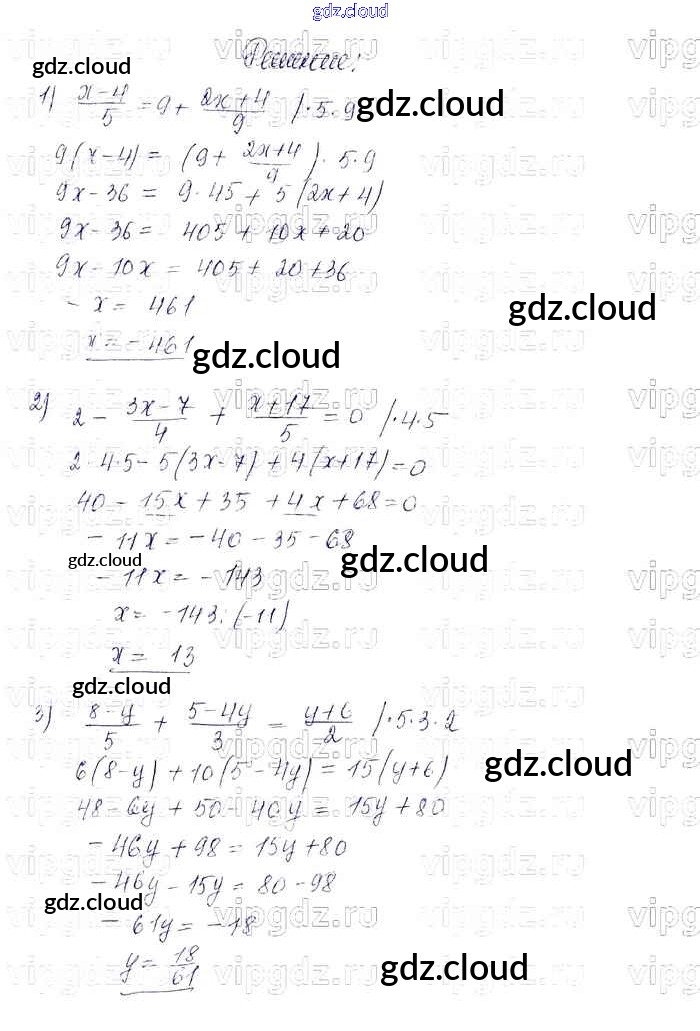 gdz.cloud
Решение:
gdz.cloud
1) (x-4)/5 = 9 + (2x+4)/9 /·5·9
gdz.cloud
9(x-4) = (9 + (2x+4)/9)·5·9
9x-36 = 9·45 + 5(2x+4)
9x-36 = 405 + 10x + 20
9x-10x = 405 + 20 + 36
- x = 461
gdz.cloud
x = - 461
gdz.cloud
2) 2 - (3x-7)/4 + (x+17)/5 = 0 /·4·5
2·4·5 - 5(3x-7) + 4(x+17) = 0
40 - 15x + 35 + 4x + 68 = 0
- 11x = -40 - 35 - 68
gdz.cloud
gdz.cloud
- 11x = - 143
x = -143:(-11)
x = 13
gdz.cloud
3) (8-y)/5 + (5-4y)/3 = (y+6)/2 /·5·3·2
6(8-y) + 10(5-4y) = 15(y+6)
gdz.cloud
48 - 6y + 50 - 40y = 15y + 80
- 46y + 98 = 15y + 80
- 46y - 15y = 80 - 98
gdz.cloud
- 61y = - 18
y = 18/61
gdz.cloud
vipgdz.ru